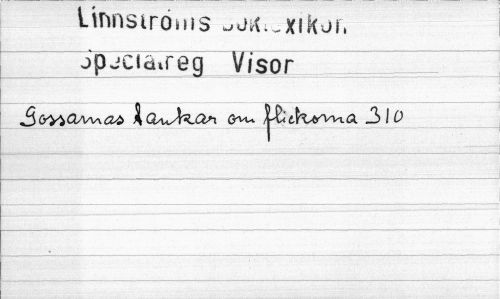 Linnströms Boklexikon
Specialreg Visor
Gossarnas tankar om flickorna 310